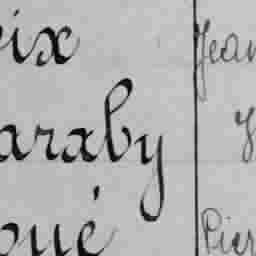 eix
araby
oué
Jean
y
Pier